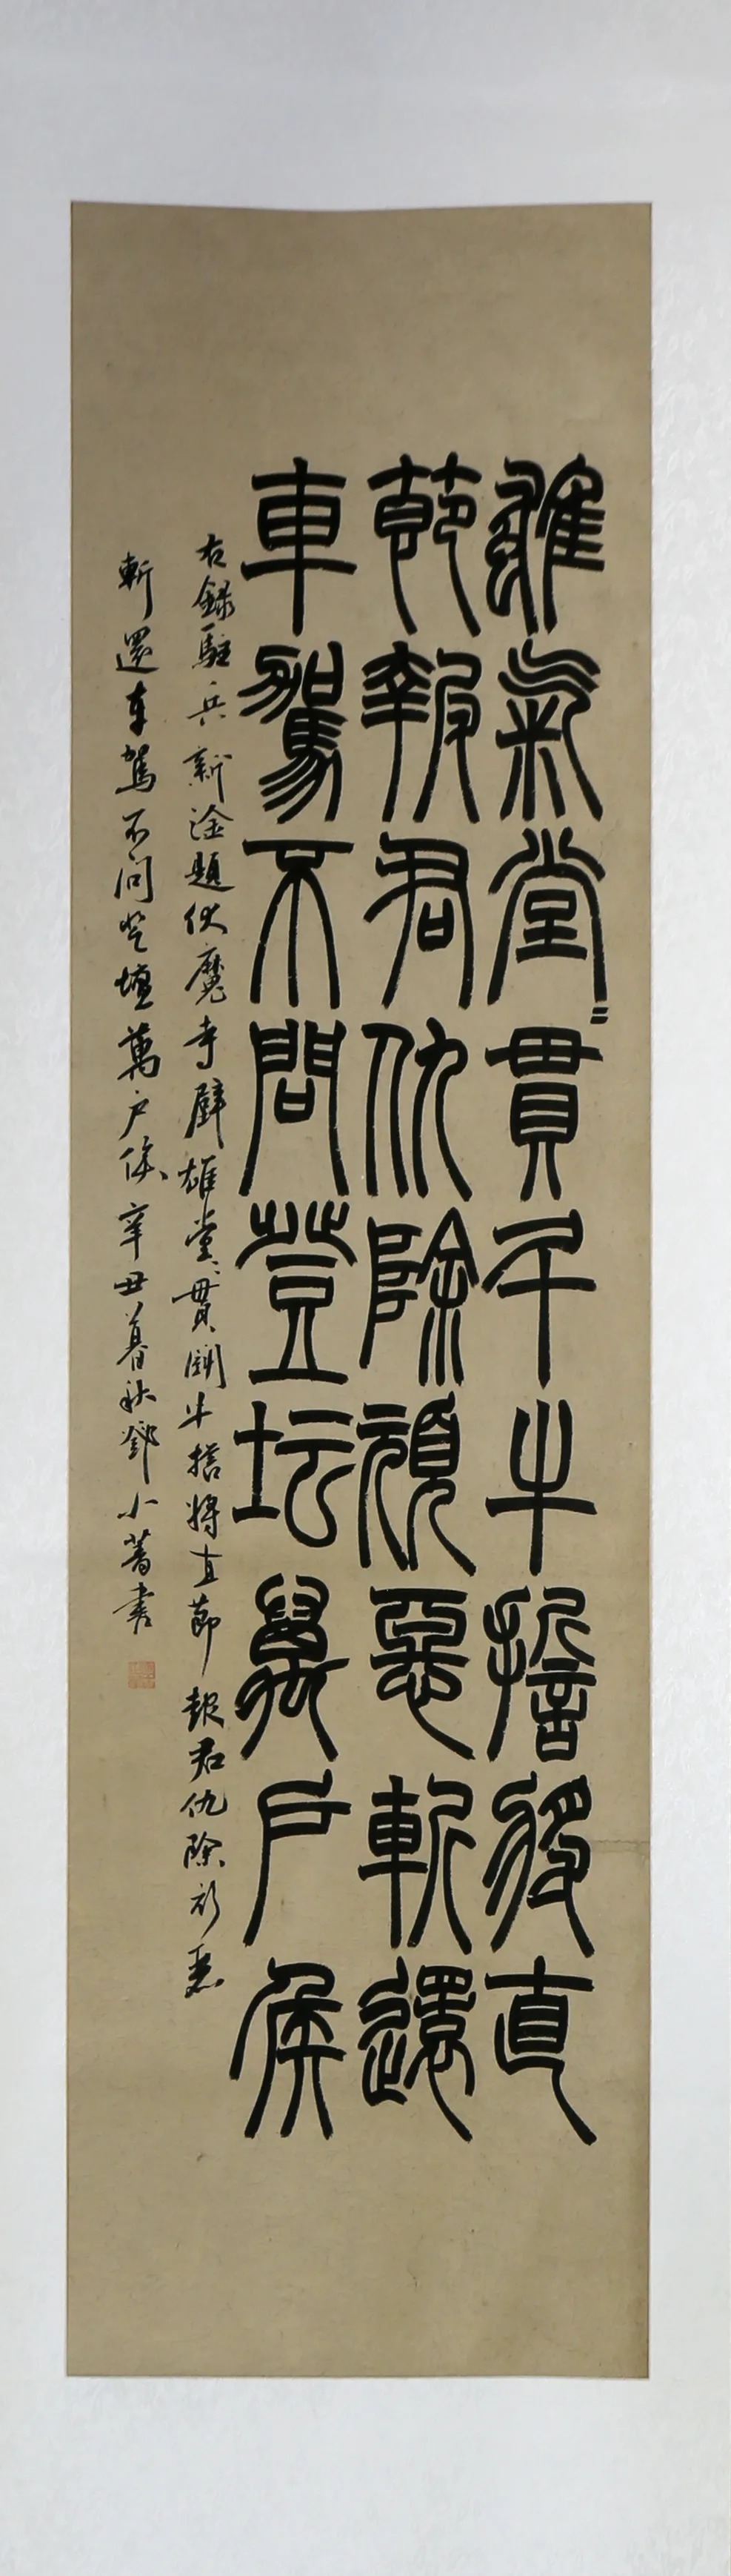 雄氣堂〻貫斗牛誓將直
節報君仇除頑惡斬還
車駕不問登坛萬戶侯
右錄駐兵新淦題伏魔寺壁雄堂〻貫鬭牛誓將直節報君仇除頑惡
斬還車駕不問登壇萬戶侯辛丑暮秋鄧小書